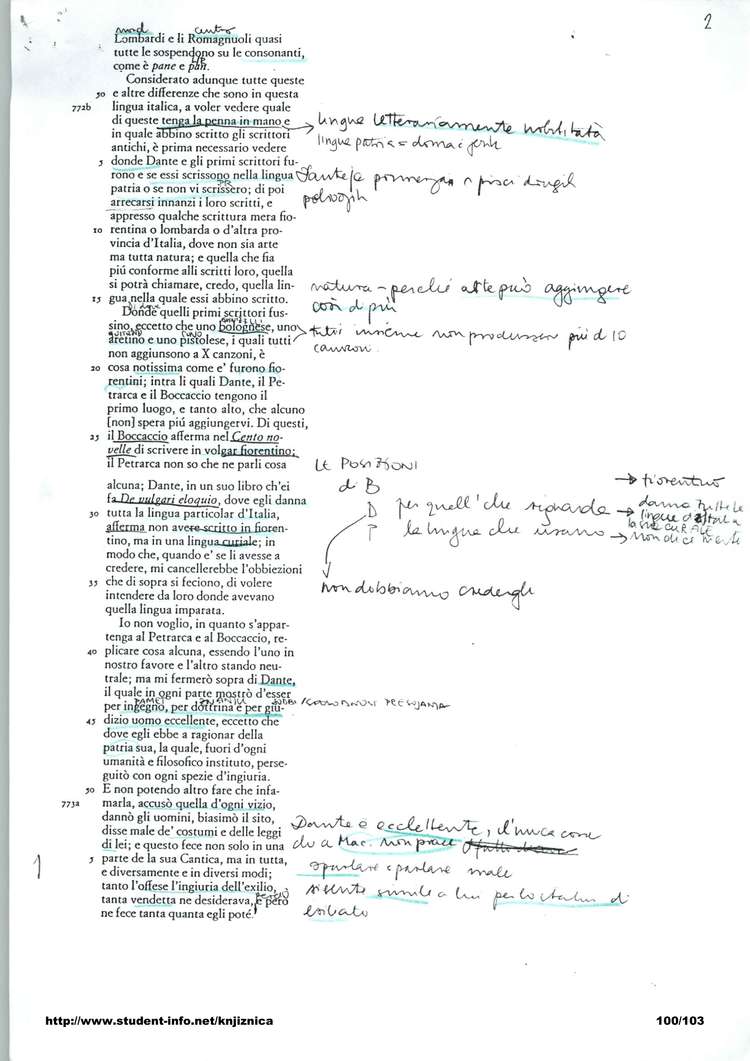 2
nord centro
Lombardi e li Romagnuoli quasi
tutte le sospendono su le consonanti,
come è pane e pan.
Considerato adunque tutte queste
50 e altre differenze che sono in questa
772b lingua italica, a voler vedere quale
di queste tenga la penna in mano e
in quale abbino scritto gli scrittori
antichi, è prima necessario vedere
5 donde Dante e gli primi scrittori fu-
rono e se essi scrissono nella lingua
patria o se non vi scrissero; di poi
arrecarsi innanzi i loro scritti, e
appresso qualche scrittura mera fio-
10 rentina o lombarda o d'altra pro-
vincia d'Italia, dove non sia arte
ma tutta natura; e quella che fia
piú conforme alli scritti loro, quella
si potrà chiamare, credo, quella lin-
15 gua nella quale essi abbino scritto.
Donde quelli primi scrittori fus-
sino, eccetto che uno bolognese, uno
aretino e uno pistolese, i quali tutti
non aggiunsono a X canzoni, è
20 cosa notissima come e' furono fio-
rentini; intra li quali Dante, il Pe-
trarca e il Boccaccio tengono il
primo luogo, e tanto alto, che alcuno
[non] spera piú aggiungervi. Di questi,
25 il Boccaccio afferma nel Cento no-
velle di scrivere in volgar fiorentino;
il Petrarca non so che ne parli cosa
alcuna; Dante, in un suo libro ch'ei
fa De vulgari eloquio, dove egli danna
30 tutta la lingua particolar d'Italia,
afferma non avere scritto in fioren-
tino, ma in una lingua curiale; in
modo che, quando e' se li avesse a
credere, mi cancellerebbe l'obbiezioni
35 che di sopra si feciono, di volere
intendere da loro donde avevano
quella lingua imparata.
Io non voglio, in quanto s'appar-
tenga al Petrarca e al Boccaccio, re-
40 plicare cosa alcuna, essendo l'uno in
nostro favore e l'altro stando neu-
trale; ma mi fermerò sopra di Dante,
il quale in ogni parte mostrò d'esser
per ingegno, per dottrina e per giu-
45 dizio uomo eccellente, eccetto che
dove egli ebbe a ragionar della
patria sua, la quale, fuori d'ogni
umanità e filosofico instituto, perse-
guitò con ogni spezie d'ingiuria.
50 E non potendo altro fare che infa-
773a marla, accusò quella d'ogni vizio,
dannò gli uomini, biasimò il sito,
disse male de' costumi e delle leggi
di lei; e questo fece non solo in una
5 parte de la sua Cantica, ma in tutta,
e diversamente e in diversi modi;
tanto l'offese l'ingiuria dell'exilio,
tanta vendetta ne desiderava, e però
ne fece tanta quanta egli poté.
lingue letterariamente nobilitatà
lingue patria =
natura - perché arte può aggiungere
così d più
tutti insieme non produssero più d 10
canzoni.
LE POSIZIONI
d B → fiorentino
D per quell' che riguarda → danna tutte le
P la lingua che usano → non dice niente
non dobbiamo credergli
Dante è eccellente, l'unica cosa
spartare e parlare male
si sente simile a lui per lo status di
esiliato
http://www.student-info.net/knjiznica
100/103